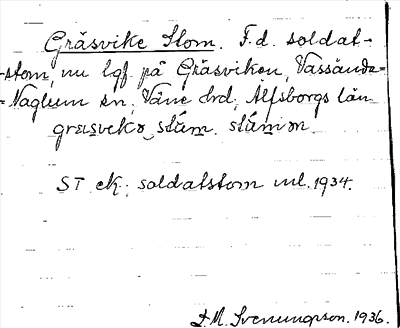 Gräsvike Stom. F.d. soldat-
stom, nu lgf på Gräsviken, Vassända-
-Naglum sn, Väne hrd, Älfsborgs län
St ek. soldatstom nl. 1934.
D.M. Svenungsson. 1936.